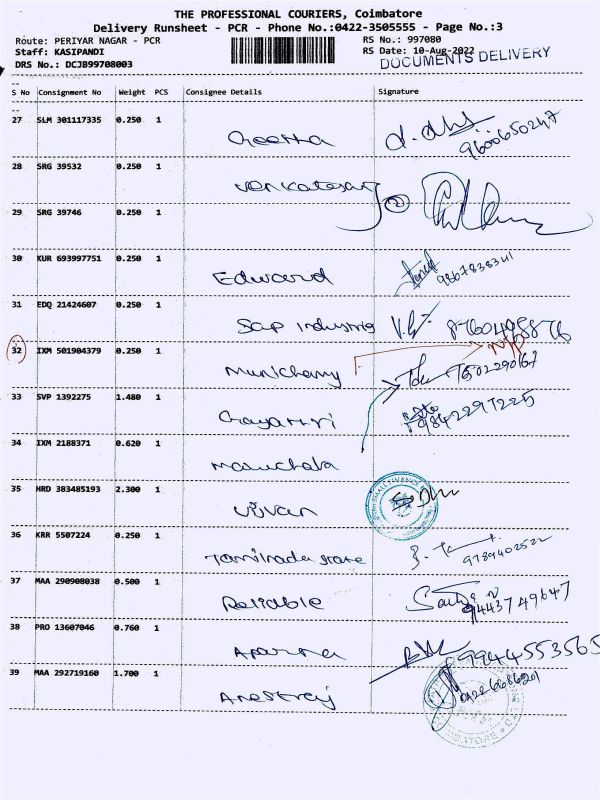 THE PROFESSIONAL COURIERS, Coimbatore
Delivery Runsheet - PCR - Phone No.:0422-3505555 - Page No.:3
Route: PERIYAR NAGAR - PCR RS No.: 997080
Staff: KASIPANDI RS Date: 10-Aug-2022
DRS No.: DCJB99708003 DOCUMENTS DELIVERY
S No Consignment No Weight PCS Consignee Details Signature
27 SLM 301117335 0.250 1 Geetha 9600650247
28 SRG 39532 0.250 1 Venkatesan
29 SRG 39746 0.250 1
30 KUR 693997751 0.250 1 Edward 9867838341
31 EDQ 21424607 0.250 1 Scup industrig 8760495876
32 IXM 501904379 0.250 1 Munichamy 7502290167
33 SVP 1392275 1.480 1 Gayathri 9842297225
34 IXM 2188371 0.620 1
35 HRD 383485193 2.300 1 Ujjvan
36 KRR 5507224 0.250 1 Tamilnadu state 9789402522
37 MAA 290908038 0.500 1 Reliable 9443749647
38 PRO 13607046 0.760 1 Aparna 9944553565
39 MAA 292719160 1.700 1